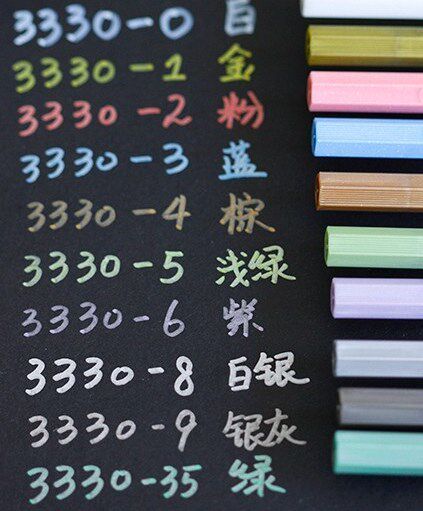 3330-0 白
3330-1 金
3330-2 粉
3330-3 蓝
3330-4 棕
3330-5 浅绿
3330-6 紫
3330-8 白银
3330-9 银灰
3330-35 绿